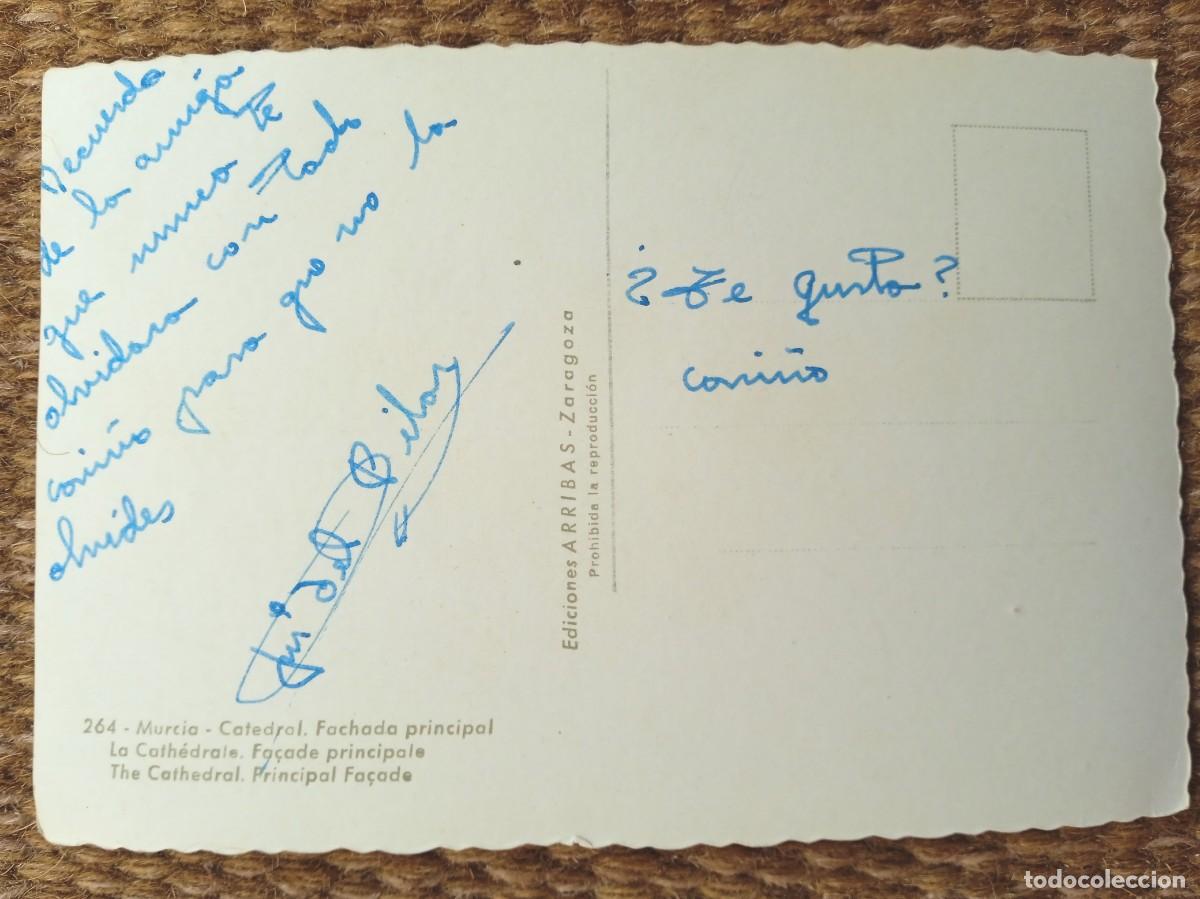 Recuerdo
de la amiga
que nunca te
olvidara con todo
cariño para que no la
olvides
del Pilar
¿Te gusta?
cariño
Ediciones ARRIBAS - Zaragoza
Prohibida la reproducción
264 - Murcia - Catedral. Fachada principal
La Cathédrale. Façade principale
The Cathedral. Principal Façade
todocoleccion